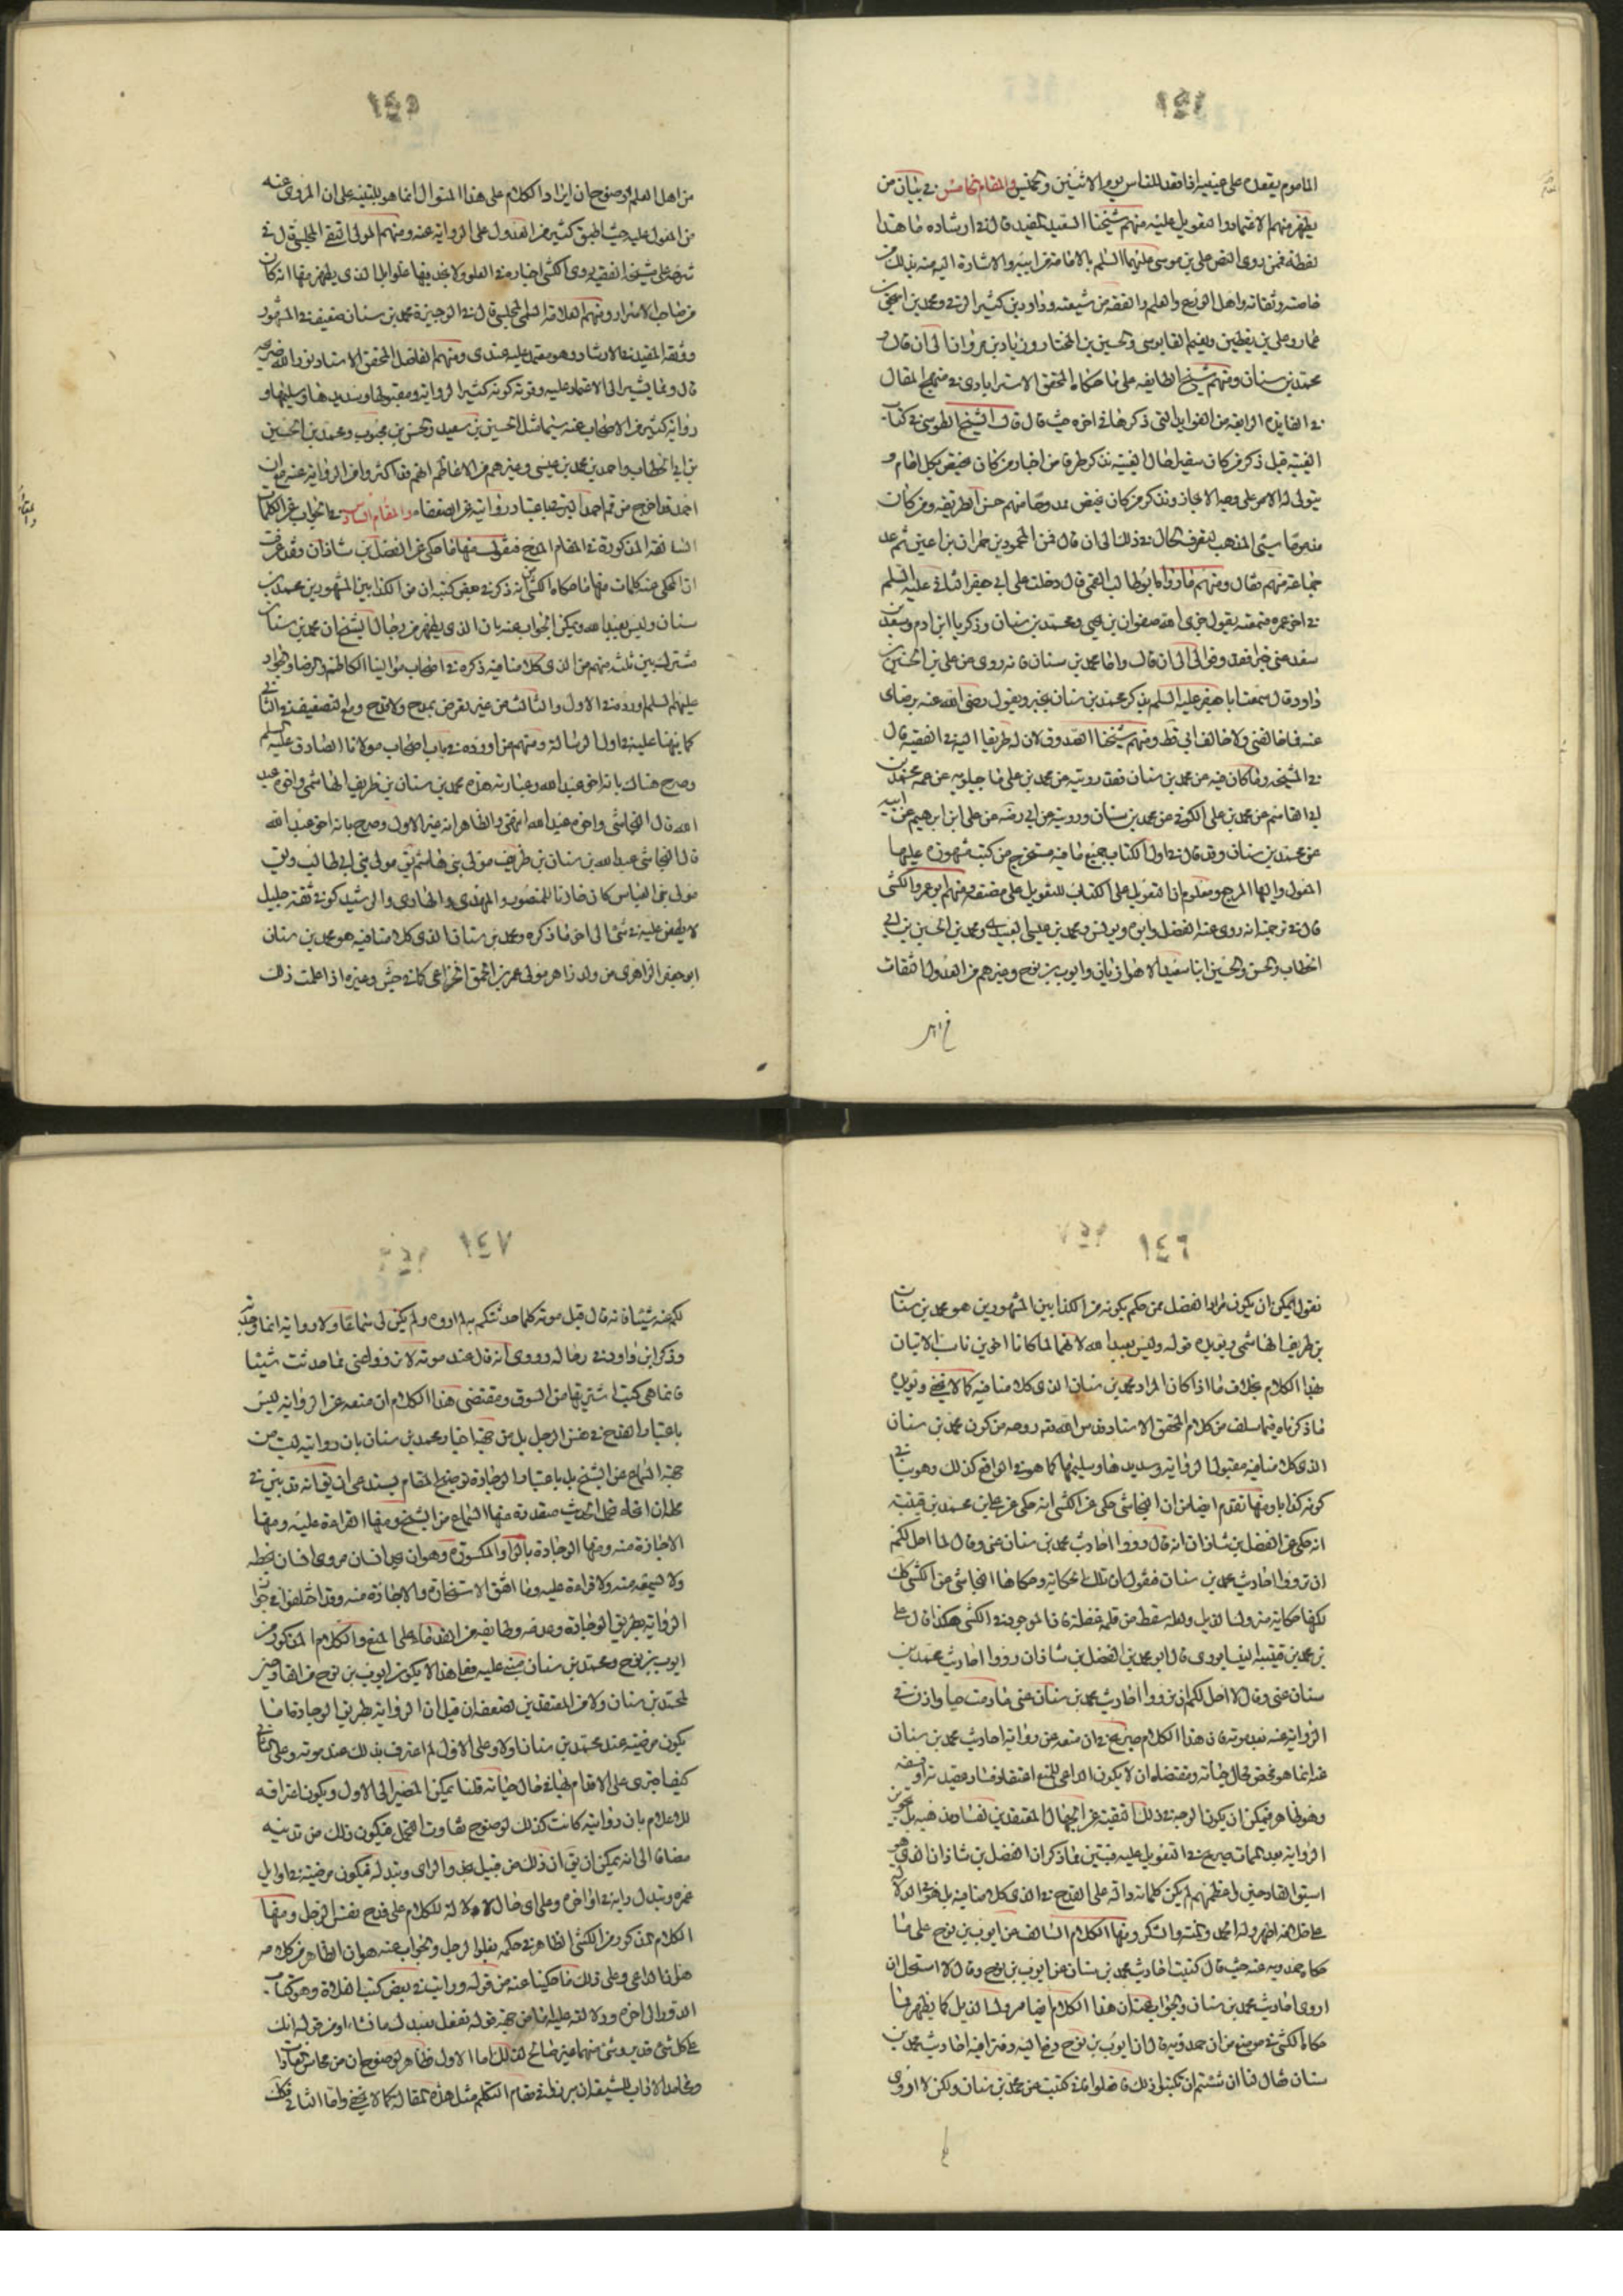 ١٤٤
المامون يقعد على يمينه اذا قعد للناس يوم الاثنين والخميس والمقام الخامس في بيان من
يظهر منهم الاعتماد والتعويل عليه منهم شيخنا السعيد المفيد قال في ارشاده ما هذا
لفظه فممن روى النص على بن موسى عليهما السلم بالامامة من ابيه والاشارة اليه منه بذلك من
خاصته وثقاته واهل الورع والعلم والفقه من شيعته داود بن كثير الرقى ومحمد بن اسحق بن
عمار وعلى بن يقطين ونعيم القابوسى والحسين بن المختار وزياد بن مروان الى ان قال و
محمد بن سنان ومنهم شيخ الطايفه على ما حكاه المحقق الاسترابادى في منهج المقال
في الفايدة الرابعة من الفوايد التى ذكرها في اخره حيث قال قال الشيخ الطوسى في كتاب
الغيبة قبل ذكر من كان سفيرا حال الغيبة نذكر طرفا من اخبار من كان يختص بكل امام و
يتولى له الامر على وجه الايجاز ونذكر من كان يختص ممدوحا منهم حسن الطريقه ومن كان
مذموما سيئ المذهب ليعرف الحال في ذلك الى ان قال فمن المحمودين حمران بن اعين ثم عد
جماعة منهم فقال ومنهم ما رواه ابو طالب القمى قال دخلت على ابى جعفر الثانى عليه السلم
في اخر عمره فسمعته يقول جزى الله صفوان بن يحيى ومحمد بن سنان وزكريا ابن ادم وسعد بن
سعد عنى خيرا فقد وفوا لى الى ان قال واما محمد بن سنان فانه روى عن على بن الحسين بن
داود قال سمعت ابا جعفر عليه السلم يذكر محمد بن سنان بخير ويقول رضى الله عنه برضاى
عنه فما خالفنى ولا خالف ابى قط ومنهم شيخنا الصدوق لان له طريقا اليه في الفقيه قال
في المشيخه وما كان فيه عن محمد بن سنان فقد رويته عن محمد بن على ماجيلويه عن عمه محمد بن
ابى القاسم عن محمد بن على الكوفى عن محمد بن سنان ورويته عن ابى رضه عن على ابن ابرهيم عن ابيه
عن محمد بن سنان وقد قال في اول الكتاب جميع ما فيه مستخرج من كتب مشهوره عليها
المعول واليها المرجع ومعلوم ان التعويل على الكتاب للتعويل على مصنفه ومنهم ابو عمرو الكشى
قال في ترجمته انه روى عنه الفضل وابوه ويونس ومحمد بن عيسى العبيدى ومحمد بن الحسين بن ابى
الخطاب والحسن والحسين ابنا سعيد الاهوازيان وايوب بن نوح وغيرهم من العدول الثقات
١٤٥
من اهل العلم لوضوح ان ايراد الكلام على هذا المنوال انما هو للتنبيه على ان المروى عنه
من المعول عليه حيث اطبق كثير من العدول على الرواية عنه ومنهم المولى التقى المجلسى قال في
شرحه على مشيخة الفقيه روى الكشى اخبارا في الغلو ولا نجد فيها غلوا بل الذى يظهر منها انه كان
من اصحاب الاسرار ومنهم العلامة السمى المجلسى قال في الوجيزة محمد بن سنان ضعيف في المشهور
ووثقه المفيد في الارشاد وهو معتمد عليه عندى ومنهم الفاضل المحقق الاستاد نور الله ضريحه
قال ومما يشير الى الاعتماد عليه وقوته كونه كثير الرواية ومقبولها وسديدها وسليمها و
رواية كثير من الاصحاب عنه سيما مثل الحسين بن سعيد والحسن بن محبوب ومحمد بن الحسين
بن ابى الخطاب واحمد بن محمد بن عيسى وغيرهم من الاعاظم انهم قد اكثروا من الرواية عنه مع ان
احمد قد اخرج من قم احمد البرقى باعتبار روايته عن الضعفاء والمقام السادس في الجواب عن الكلمات
السالفة المذكورة في المقام فنقول منها ما حكى عن الفضل بن شاذان وقد عرفت
ان المحكى عنه كلمات منها ما حكاه الكشى انه ذكر في بعض كتبه ان من الكذابين المشهورين محمد بن
سنان وليس بعبد الله ويمكن الجواب عنه بان الذى يظهر من رجال الشيخ ان محمد بن سنان
مشترك بين ثلثة منهم من الذى كلامنا فيه ذكره في اصحاب موالينا الكاظم والرضا والجواد
عليهم السلم اورده في الاول والثالث من غير تعرض بمدح ولا قدح ومع التضعيف في الثانى
كما نبهنا عليه في اول الرسالة ومنهم من اورده في باب اصحاب مولانا الصادق عليه السلم
وصرح هناك بانه اخو عبد الله وعبارته هذه محمد بن سنان بن طريف الهاشمى واخوه عبد
الله قال النجاشى واخوه عبد الله انتهى والظاهر انه غير الاول وصرح بانه اخو عبد الله
قال النجاشى عبد الله بن سنان بن طريف مولى بنى هاشم يق مولى بنى ابى طالب ويق
مولى بنى العباس كان خازنا للمنصور والمهدى والهادى والرشيد كوفى ثقة جليل
لا يطعن عليه في شئ الى اخر ما ذكره ومحمد بن سنان الذى كلامنا فيه هو محمد بن سنان
ابو جعفر الزاهرى من ولد زاهر مولى عمرو بن الحمق الخزاعى كما في جش وغيره اذا علمت ذلك
١٤٦
نقول يمكن ان يكون مراد الفضل ممن حكم بكونه من الكذابين المشهورين هو محمد بن سنان
بن طريف الهاشمى ويؤيده قوله وليس بعبد الله لانهما لما كانا اخوين ناسب الاتيان
بهذا الكلام بخلاف ما اذا كان المراد محمد بن سنان الذى كلامنا فيه كما لا يخفى ويؤيده
ما ذكرناه فيما سلف من كلام المحقق الاستاد قدس الله روحه من كون محمد بن سنان
الذى كلامنا فيه مقبول الرواية وسديدها وسليمها كما هو في الواقع كذلك وهو ينافى
كونه كذابا ومنها تقدم ايضا من ان النجاشى حكى عن الكشى انه حكى عن على بن محمد بن قتيبة
انه حكى عن الفضل بن شاذان انه قال ردوا احاديث محمد بن سنان عنى وقال لا احل لكم
ان ترووا احاديث محمد بن سنان فنقول ان تلك الحكاية وحكاها النجاشى عن الكشى كك
لكنها حكاية مبتورة الذيل ولعله سقط من قلمه غفلة فان الموجود في الكشى هكذا قال على
بن محمد بن قتيبه النيسابورى قال ابو محمد بن الفضل بن شاذان ردوا احاديث محمد بن
سنان عنى وقال لا احل لكم ان ترووا احاديث محمد بن سنان عنى ما دمت حيا واذن في
الرواية عنه بعد موته فان هذا الكلام صريح في ان منعه عن رواية احاديث محمد بن سنان
عنه انما هو مختص بحال حياته ومقتضاه ان لا يكون الداعى للمنع اعتقاد فساد عقيدته او ضعفه
وهو ظاهر فيمكن ان يكون الوجه في ذلك التقية عن الجهال المعتقدين لفساد مذهبه بل تجويز
الرواية بعد الممات صريح في التعويل عليه فتبين مما ذكر ان الفضل بن شاذان الذى هو
اسبق القادحين واعظمهم لم يكن كلماته دالة على القدح في الذى كلامنا فيه بل
ومنها الكلام السالف عن ايوب بن نوح على ما
حكاه حمدويه عنه حيث قال كتبت احاديث محمد بن سنان عن ايوب بن نوح وقال لا استحل ان
اروى احاديث محمد بن سنان والجواب عنه ان هذا الكلام ايضا مبتور الذيل كما يظهر مما
حكاه الكشى في موضع من ان حمدويه قال ان ايوب بن نوح دفع اليه دفترا فيه احاديث محمد بن
سنان فقال لنا ان شئتم ان تكتبوا ذلك فافعلوا فانى كتبت عن محمد بن سنان ولكن لا اروى
١٤٧
لكم عنه شيئا فانه قال قبل موته كلما حدثتكم به لم اروه ولم يكن لى سماعا ولا رواية انما وجدته
وذكر ابن داود في رجاله وروى انه قال عند موته لا ترووا عنى مما حدثت شيئا
فانما هى كتب اشتريتها من السوق ومقتضى هذا الكلام ان منعه عن الرواية ليس
باعتبار القدح في نفس الرجل بل من جهة اخبار محمد بن سنان بان رواياته ليست من
جهة السماع عن الشيخ بل باعتبار الوجادة توضيح المقام يستدعى ان يق انه قد تبين في
محله ان انحاء تحمل الحديث متعددة منها السماع من الشيخ ومنها القراءة عليه ومنها
الاجازة منه ومنها الوجادة بالواو المكسورة وهو ان يجد انسان مروى انسان بخطه
ولا سمعه منه ولا قراءة عليه وما اتفق الاستجازة والاجازة منه وقد اختلفوا في جواز
الرواية بطريق الوجادة وعدمه وطايفة من القدماء على المنع والكلام المذكور من
ايوب بن نوح ومحمد بن سنان مبنى عليه فعلى هذا لا يكون ايوب بن نوح من القادحين
لمحمد بن سنان ولا من المعتقدين لضعفه ان قيل ان الرواية بطريق الوجادة اما ان
يكون مرضية عند محمد بن سنان اولا وعلى الاول لم اعترف بذلك عند موته وعلى الثانى
كيف اجترى على الاقدام بها في حال حياته قلنا يمكن المصير الى الاول ويكون اعترافه
للاعلام بان روايته كانت كذلك لوضوح تفاوت التحمل فيكون ذلك من تدينه
مضافا الى انه يمكن ان يق ان ذلك من قبيل تجدد الراى وتبدله فيكون مرضية في اوايل
عمره وتبدل رايه في اواخره وعلى اى حال لا دلالة للكلام على قدح نفس الرجل ومنها
الكلام المذكور من الكشى الظاهر في حكمه بغلو الرجل والجواب عنه هو ان الظاهر من كلامه
هذا ان الداعى على ذلك ما حكينا عنه من قوله ورايت في بعض كتب الغلاة وهو كتاب
الدور الى اخره ودلالته عليه اما من جهة قوله تفعل بعبدك ما تشاء او من قوله انك
على كل شئ قدير وشئ منهما غير صالح لذلك اما الاول فظاهر لوضوح ان من محاسن العادات
ومحامد الاداب للشيعة ان يبرزوا في مقام التكلم مثل هذه المقالة كما لا يخفى واما الثانى فكك